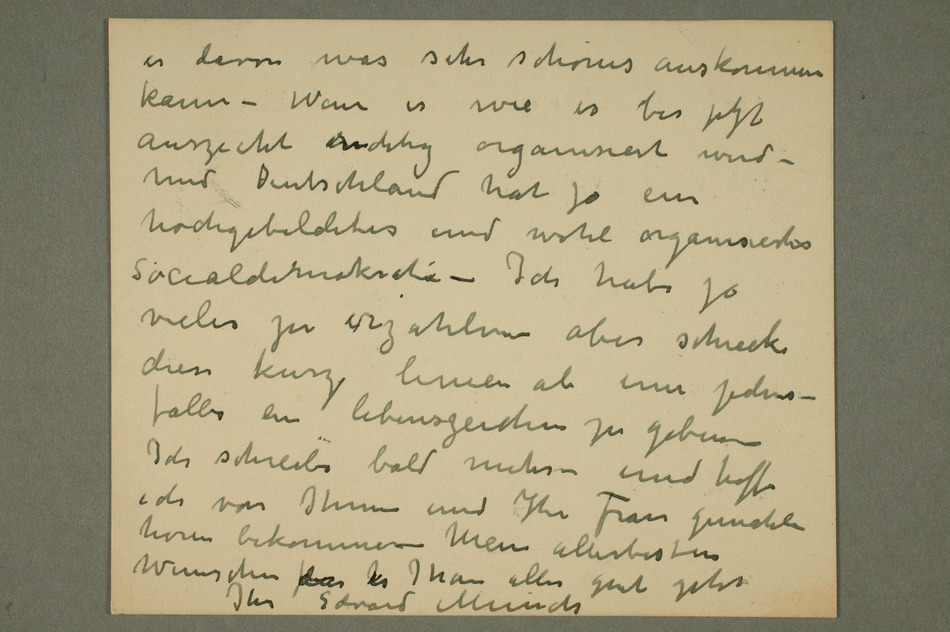 es davon was sehr schönes auskommen
kann – Wenn es wie es bis jetzt
aussieht organisiert wird –
und Deutschland hat ja ein
hochgebildetes und wohl organisiertes
Socialdemokratie – Ich habe ja
vieles zu erzählen aber schicke
diese kurze linien ab um jeden-
falls ein lebenszeichen zu geben –
Ich schreibe bald mehr – und hoffe
ich von Ihnen und Ihr Frau
hören bekommen – Mein allerbesten
Wünschen das es Ihnen alles gut geht
Ihr Edvard Munch